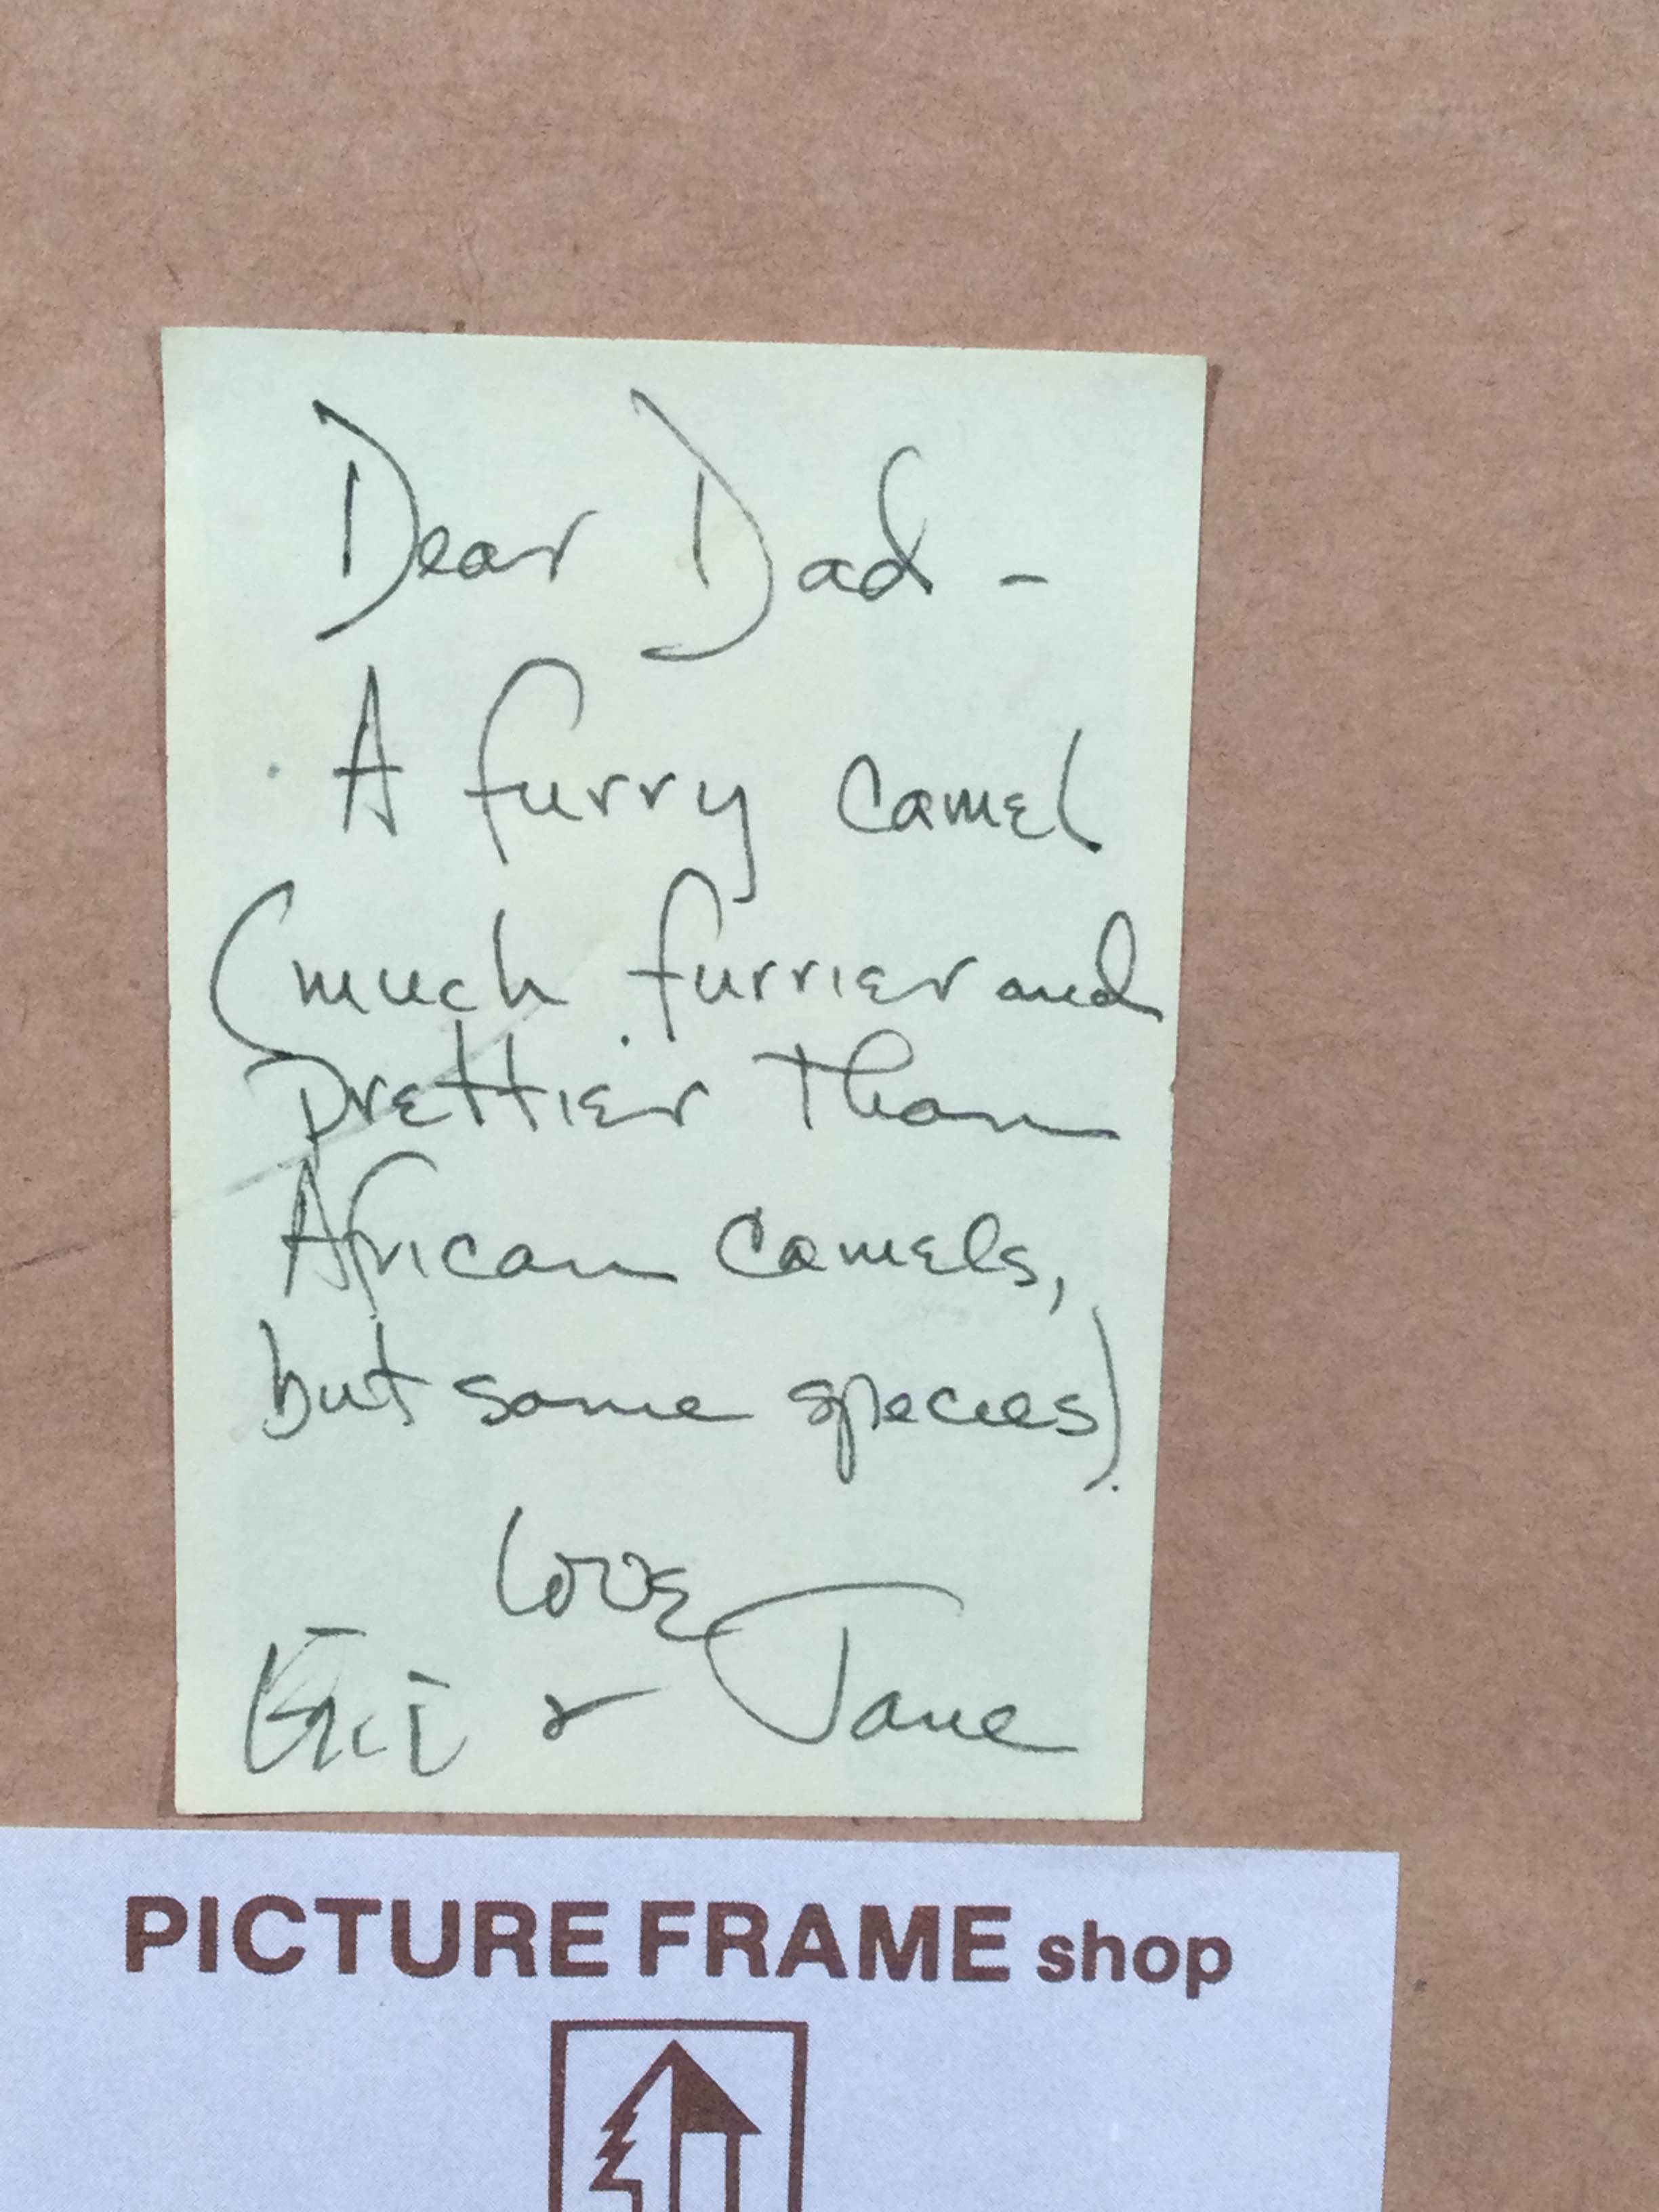 Dear Dad -
A furry camel
(much furrier and
prettier than
African camels,
but same species).
Love
& Jane
PICTURE FRAME shop